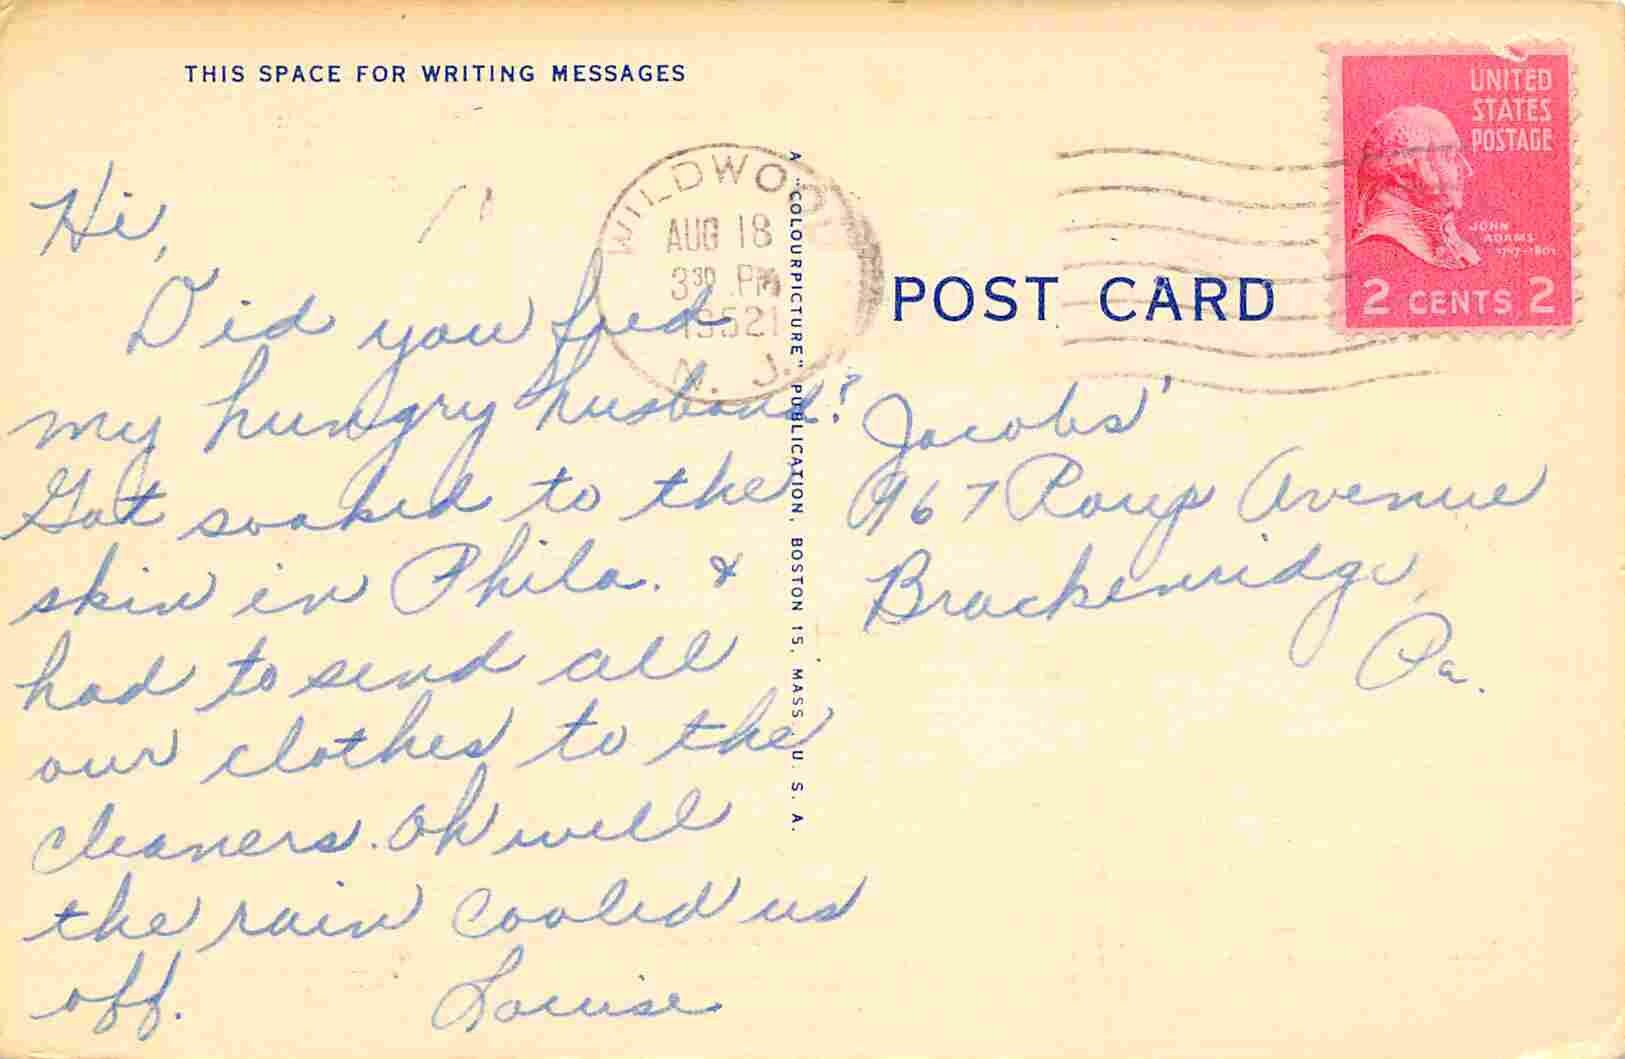 THIS SPACE FOR WRITING MESSAGES
Hi,
Did you feed
my hungry husband?
Got soaked to the
skin in Phila. &
had to send all
our clothes to the
cleaners. Oh well
the rain cooled us
off. Louise
WILDWOOD
AUG 18
3 30 PM
1952
N. J.
A "COLOURPICTURE" PUBLICATION, BOSTON 15, MASS., U. S. A.
POST CARD
UNITED
STATES
POSTAGE
JOHN
ADAMS
1797-1801
2 CENTS 2
Jacobs'
967 Roup Avenue
Brackenridge,
Pa.